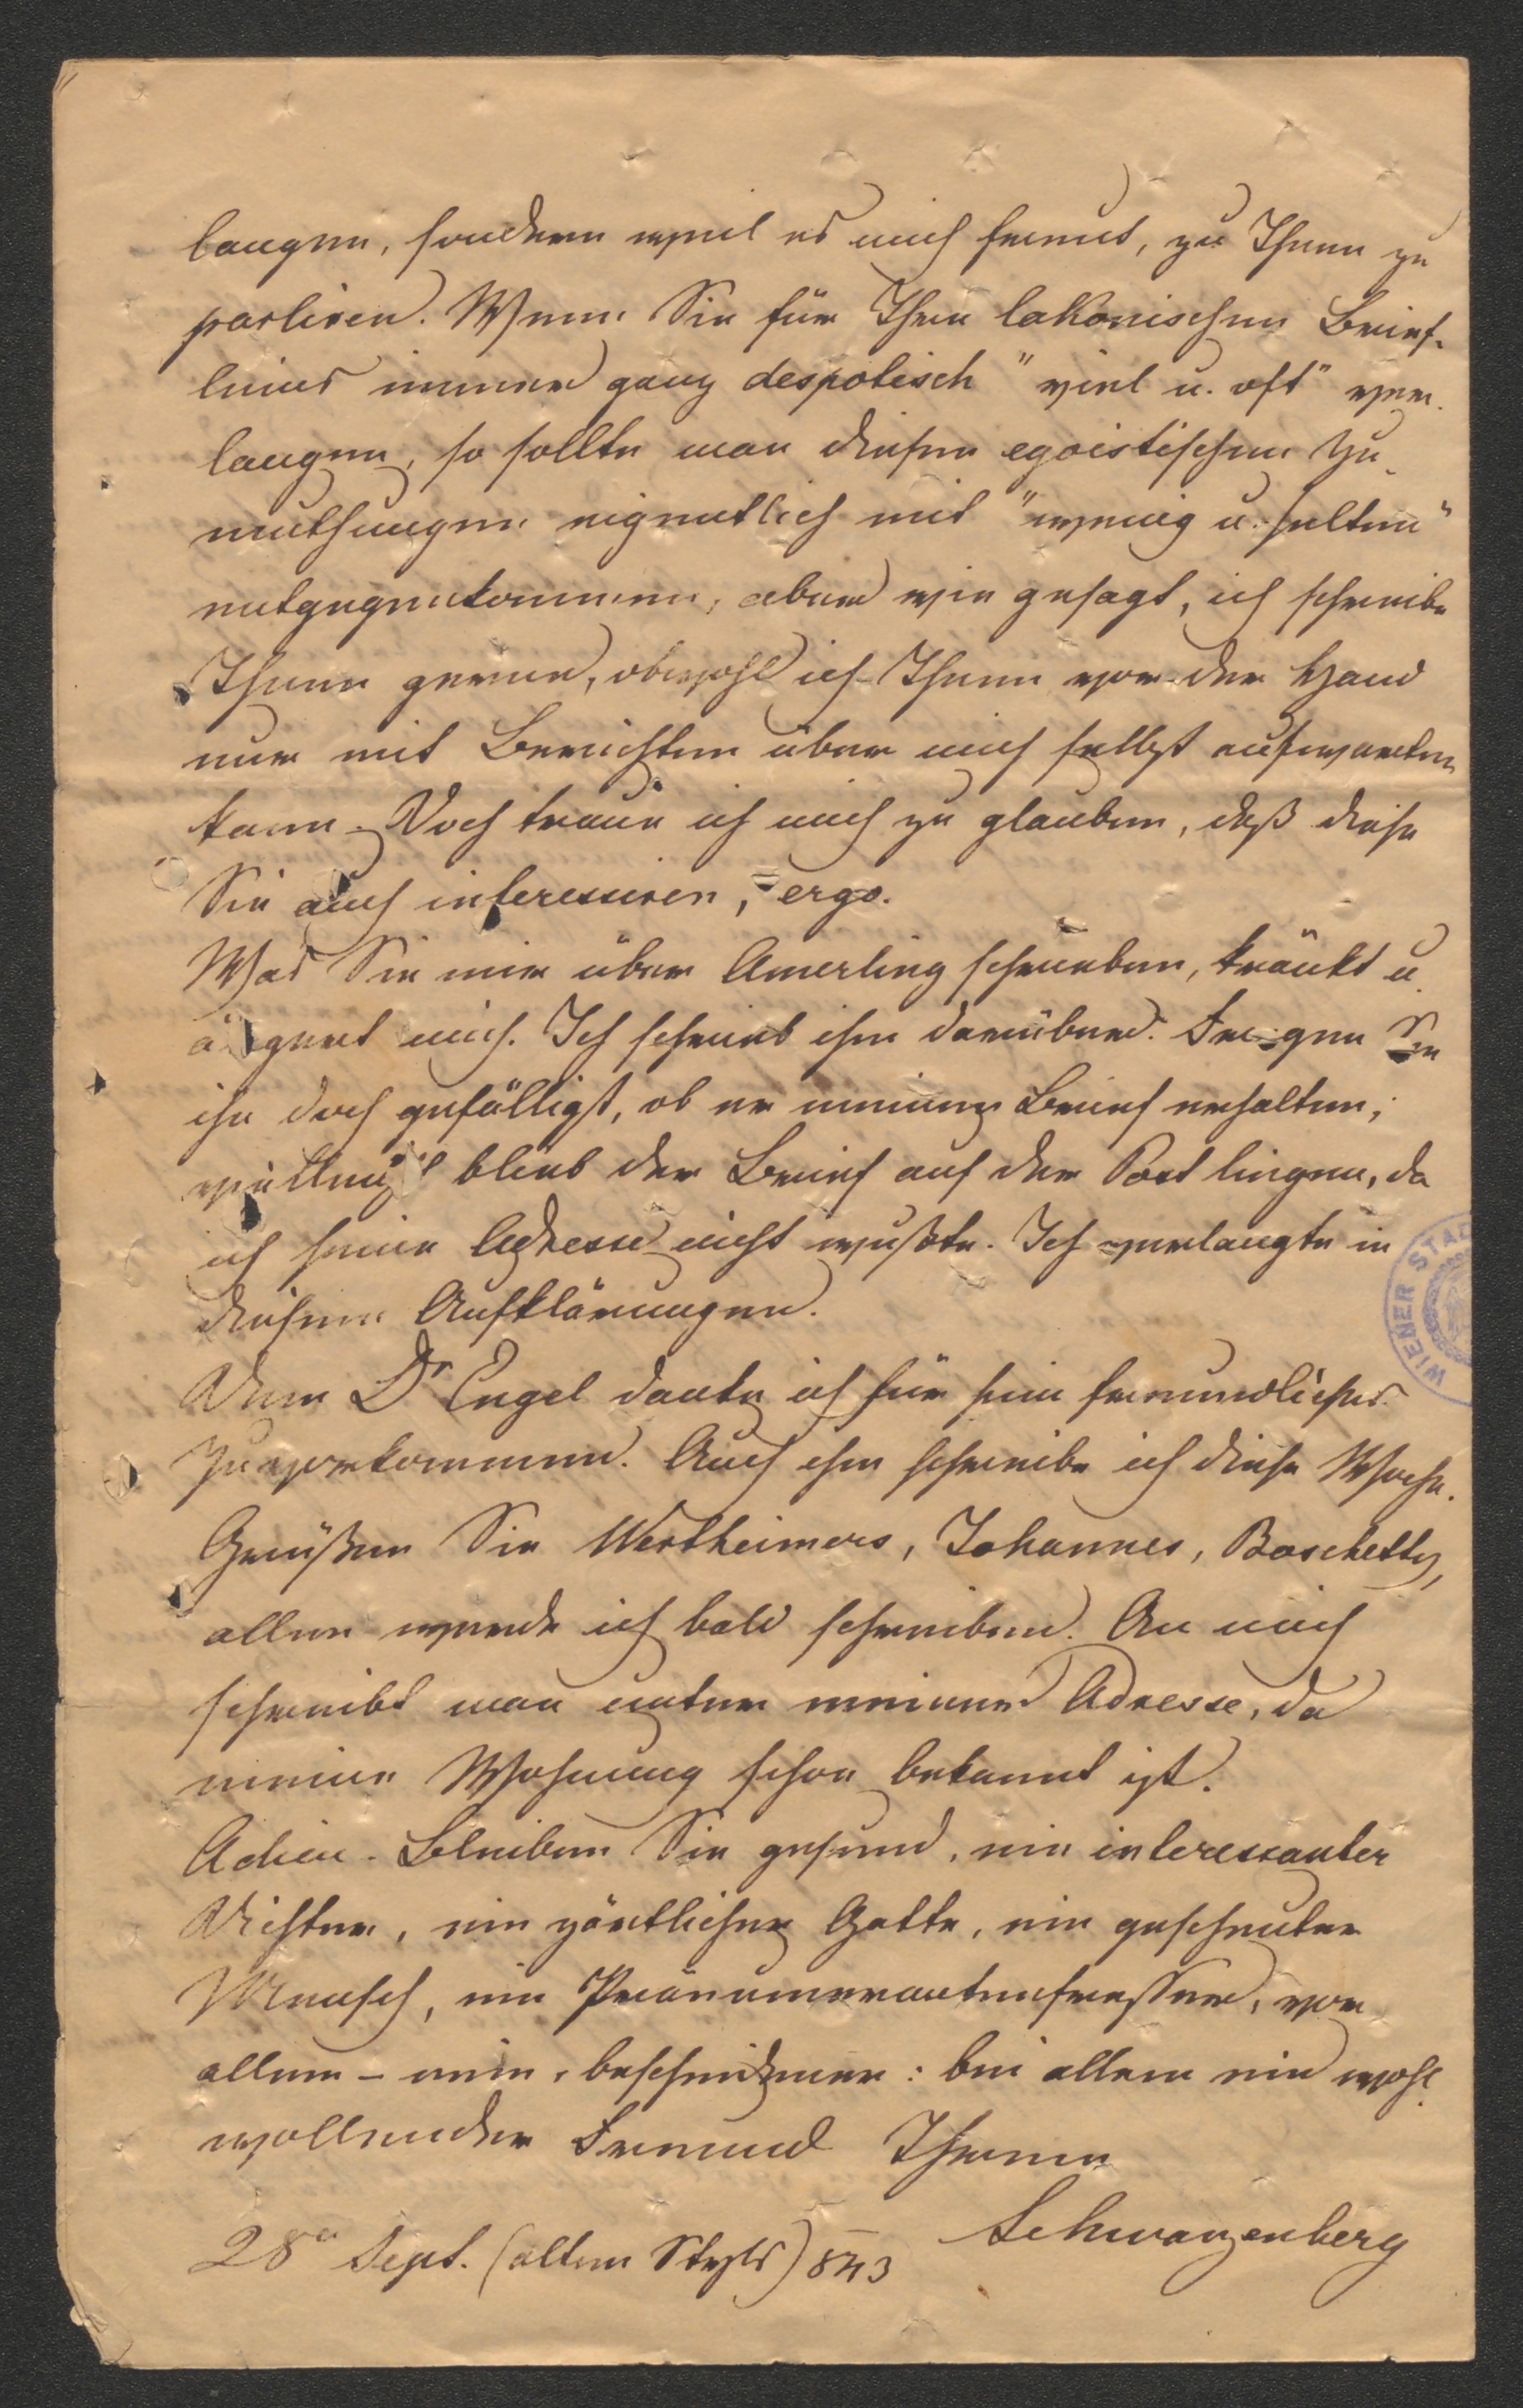 langen, sondern weil es mich freut, zu Ihnen zu
parliren. Wenn Sie für Ihre lakonischen Brief-
leins immer ganz despotisch "viel u. oft" ver-
langen, so sollte man diesen egoistischen Zu-
muthungen eigentlich mit "wenig u. selten"
entgegenkommen; aber wie gesagt, ich schreibe
Ihnen gerne, obwohl ich Ihnen vor der Hand
nur mit Berichten über mich selbst aufwarten
kann. Doch traue ich mich zu glauben, daß diese
Sie auch interessiren, ergo.
Was Sie mir über Amerling schrieben, kränkt u.
ärgert mich. Ich schrieb ihm darüber. Fragen Sie
ihn doch gefälligst, ob er meinen Brief erhalten;
vielleicht blieb der Brief auf der Post liegen, da
ich seine Adresse nicht wußte. Ich verlangte in
diesem Aufklärungen.
Dem Dr Engel danke ich für sein freundliches
Zuvorkommen. Auch ihm schreibe ich diese Woche.
Grüßen Sie Wertheimers, Johannes, Boschetty,
allen werde ich bald schreiben. An mich
schreibt man unter meiner Adresse, da
meine Wohnung schon bekannt ist.
Adieu. Bleiben Sie gesund, ein interessanter
Dichter, ein zärtlicher Gatte, ein gescheuter
Mensch, ein Pränumerantenfresser, vor
allem – nein, bescheidener: bei allem ein wohl-
wollender Freund Ihrem
Schwarzenberg
28n Sept. (alten Styls) 843
WIENER STAD